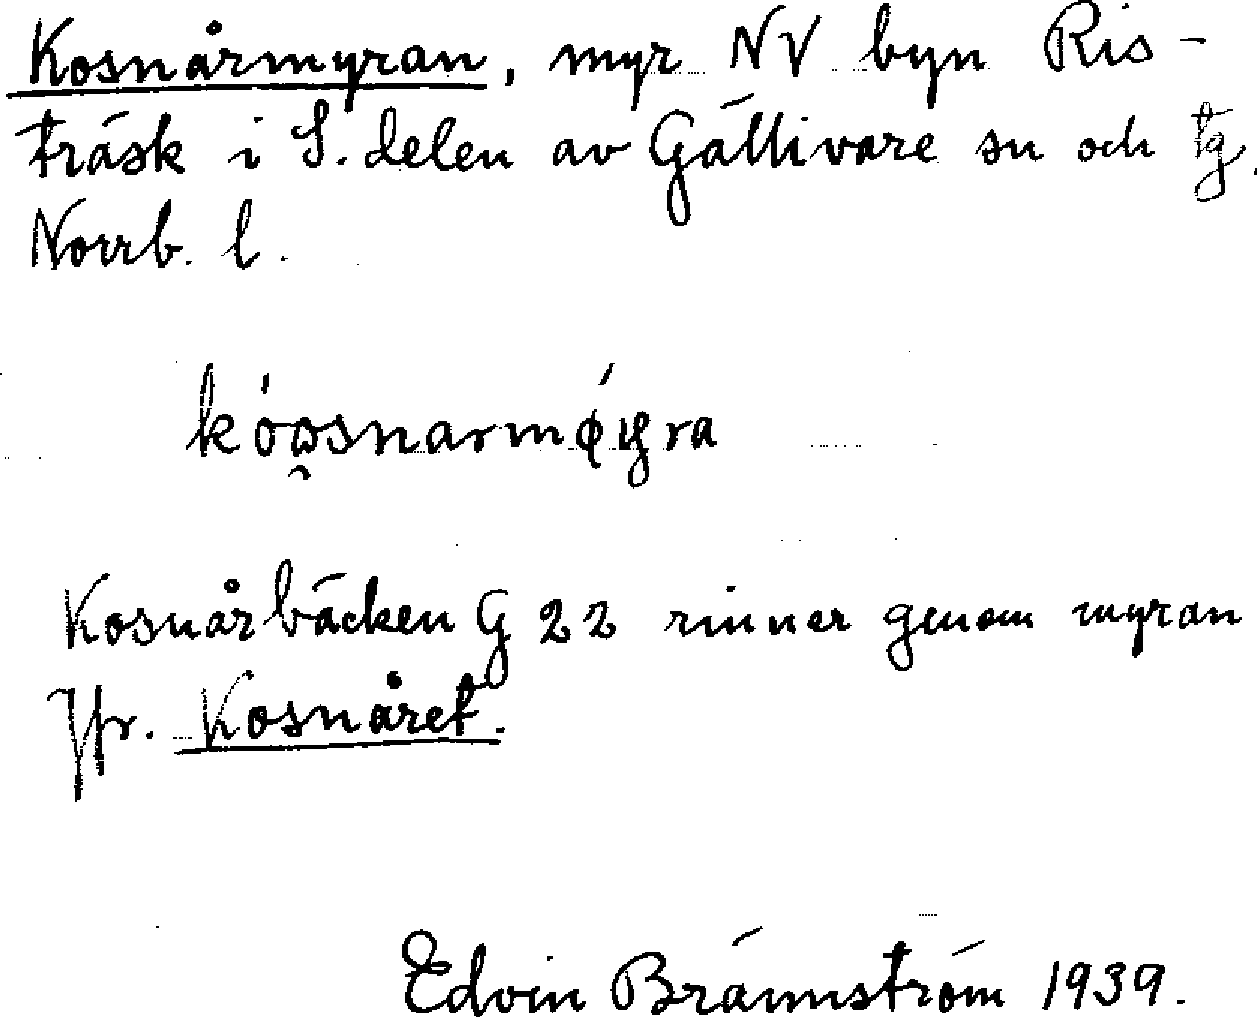 Kosnårmyran, myr NV byn Ris-
träsk i S. delen av Gällivare sn och tg.
Norrb. l.
kóosnarmǿyra
Kosnårbäcken G 22 rinner genom myran
Jfr. Kosnåret.
Edvin Brännström 1939.